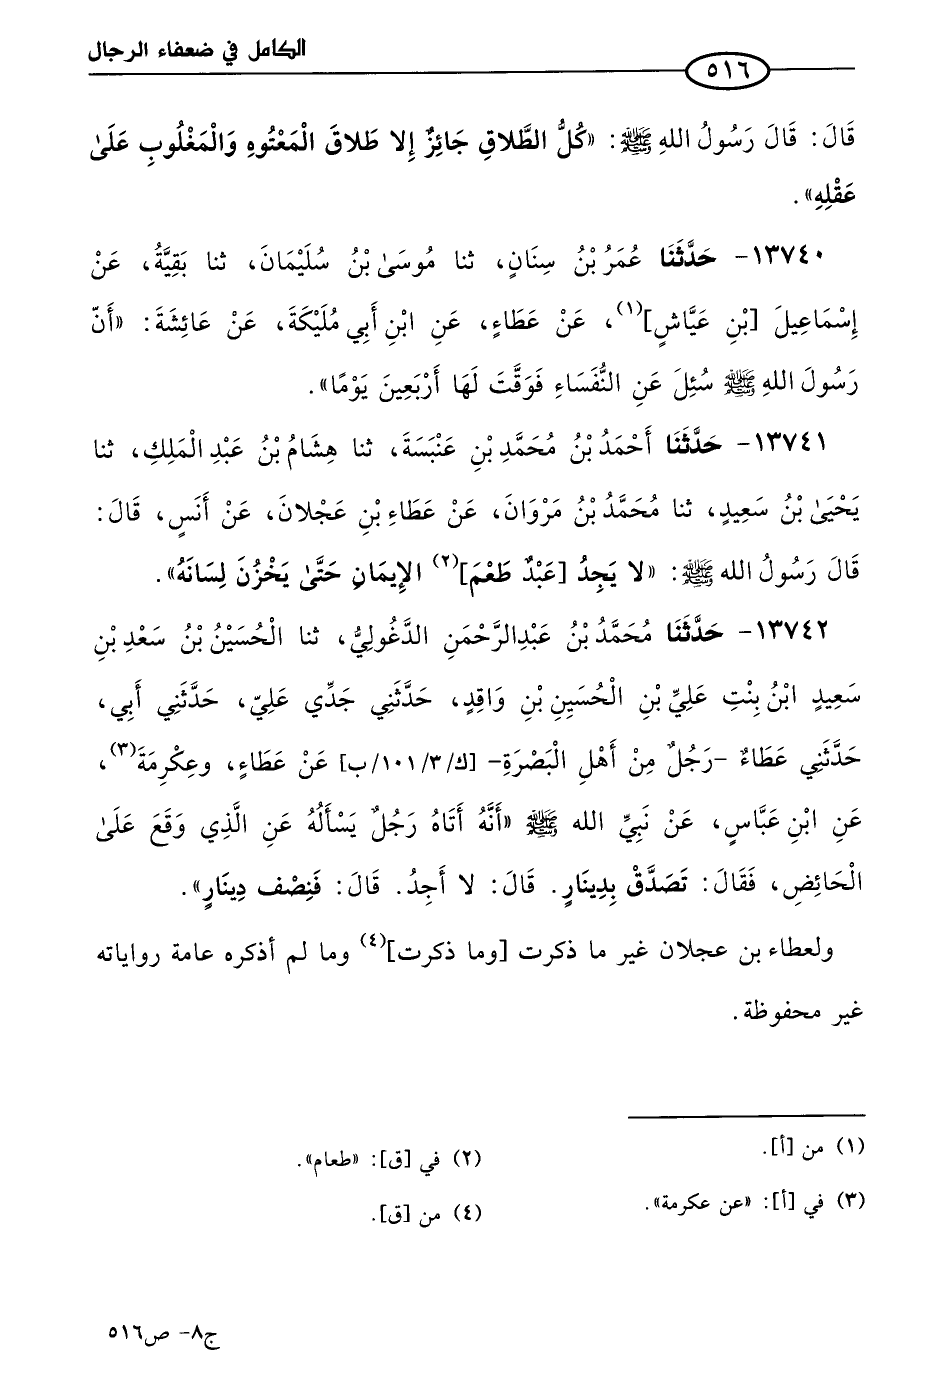 الكامل في ضعفاء الرجال
٥١٦
قَالَ: قَالَ رَسُولُ اللهِ ﷺ: «كُلُّ الطَّلاقِ جَائِزٌ إِلا طَلاقَ الْمَعْتُوهِ وَالْمَغْلُوبِ عَلَىٰ
عَقْلِهِ».
١٣٧٤٠- حَدَّثَنَا عُمَرُ بْنُ سِنَانٍ، ثنا مُوسَىٰ بْنُ سُلَيْمَانَ، ثنا بَقِيَّةُ، عَنْ
إِسْمَاعِيلَ [بْنِ عَيَّاشٍ](١)، عَنْ عَطَاءٍ، عَنِ ابْنِ أَبِي مُلَيْكَةَ، عَنْ عَائِشَةَ: «أَنّ
رَسُولَ اللهِ ﷺ سُئِلَ عَنِ النُّفَسَاءِ فَوَقَّتَ لَهَا أَرْبَعِينَ يَوْمًا».
١٣٧٤١- حَدَّثَنَا أَحْمَدُ بْنُ مُحَمَّدِ بْنِ عَنْبَسَةَ، ثنا هِشَامُ بْنُ عَبْدِ الْمَلِكِ، ثنا
يَحْيَىٰ بْنُ سَعِيدٍ، ثنا مُحَمَّدُ بْنُ مَرْوَانَ، عَنْ عَطَاءِ بْنِ عَجْلانَ، عَنْ أَنَسٍ، قَالَ:
قَالَ رَسُولُ الله ﷺ: «لا يَجِدُ [عَبْدٌ طَعْمَ](٢) الإِيمَانِ حَتَّىٰ يَخْزُنَ لِسَانَهُ».
١٣٧٤٢- حَدَّثَنَا مُحَمَّدُ بْنُ عَبْدِالرَّحْمَنِ الدَّغُولِيُّ، ثنا الْحُسَيْنُ بْنُ سَعْدِ بْنِ
سَعِيدٍ ابْنُ بِنْتِ عَلِيِّ بْنِ الْحُسَيِنِ بْنِ وَاقِدٍ، حَدَّثَنِي جَدِّي عَلِيّ، حَدَّثَنِي أَبِي،
حَدَّثَنِي عَطَاءٌ -رَجُلٌ مِنْ أَهْلِ الْبَصْرَةِ- [ك/٣/١٠١/ب] عَنْ عَطَاءٍ، وعِكْرِمَةَ(٣)،
عَنِ ابْنِ عَبَّاسٍ، عَنْ نَبِيِّ الله ﷺ «أَنَّهُ أَتَاهُ رَجُلٌ يَسْأَلُهُ عَنِ الَّذِي وَقَعَ عَلَىٰ
الْحَائِضِ، فَقَالَ: تَصَدَّقْ بِدِينَارٍ. قَالَ: لا أَجِدُ. قَالَ: فَنِصْف دِينَارٍ».
ولعطاء بن عجلان غير ما ذكرت [وما ذكرت](٤) وما لم أذكره عامة رواياته
غير محفوظة.
(١) من [أ].
(٢) في [ق]: «طعام».
(٣) في [أ]: «عن عكرمة».
(٤) من [ق].
ج٨- ص٥١٦